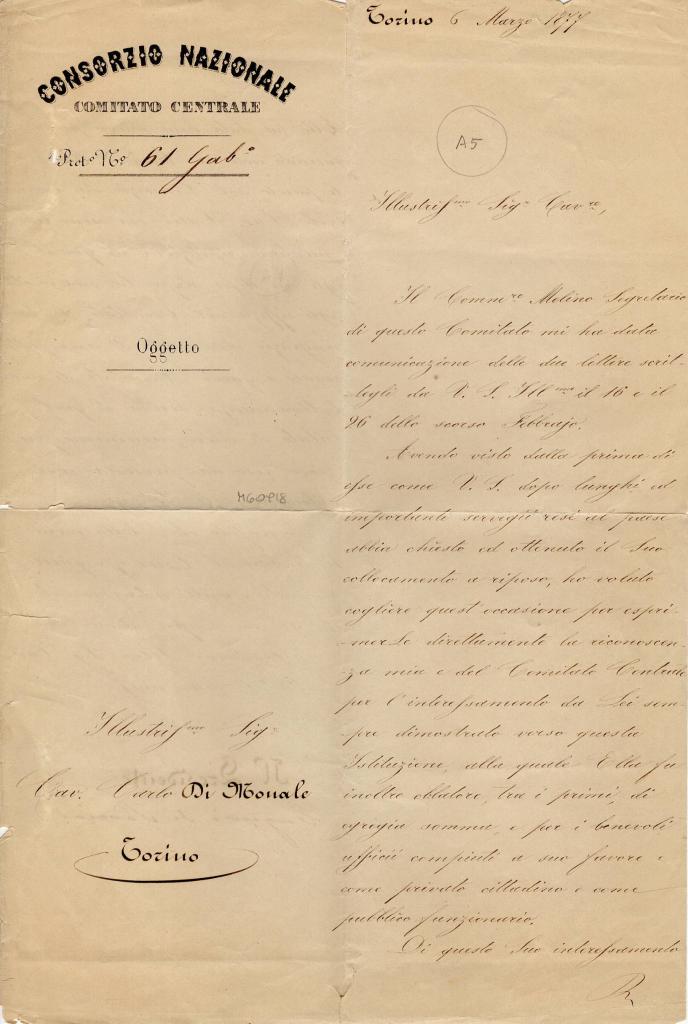 CONSORZIO NAZIONALE
COMITATO CENTRALE
Prot.º Nº 61 Gabº
Oggetto
MG0918
Illustrissmo Sigr
Cav. Carlo Di Monale
Torino
Torino 6 Marzo 1877
A5
Illustrissmo Sigr Cavre,
Il Commre Molino Segretario
di questo Comitato mi ha data
comunicazione delle due lettere scrit-
-tegli da V. S. Illma il 16 e il
26 dello scorso Febbrajo.
Avendo visto dalla prima di
esse come V. S. dopo lunghi ed
importanti servigii resi al paese
abbia chiesto ed ottenuto il Suo
collocamento a riposo, ho voluto
cogliere quest'occasione per espri-
-merLe direttamente la riconoscen-
-za mia e del Comitato Centrale
per l'interessamento da Lei sem-
-pre dimostrato verso questa
Istituzione, alla quale Ella fu
inoltre oblatore, tra i primi, di
egregia somma, e per i benevoli
ufficii compiuti a suo favore e
come privato cittadino e come
pubblico funzionario.
Di questo Suo interessamento